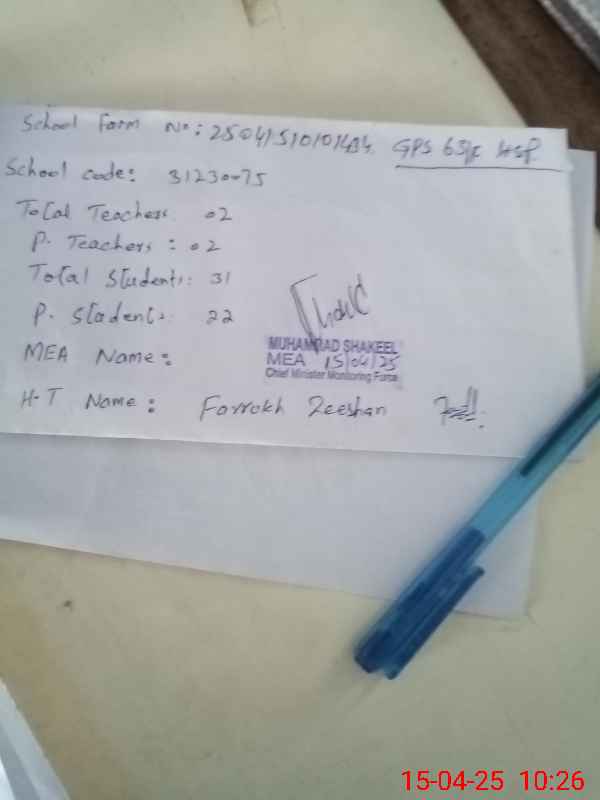 School Form No: GPS 63/E HSP
School code: 31230075
Total Teachers 02
P. Teachers: 02
Total Students: 31
P. Students: 22
MEA Name:
MUHAMMAD SHAKEEL
MEA 15/04/25
Chief Minister Monitoring Force
H-T Name: Farrokh Zeeshan
15-04-25 10:26